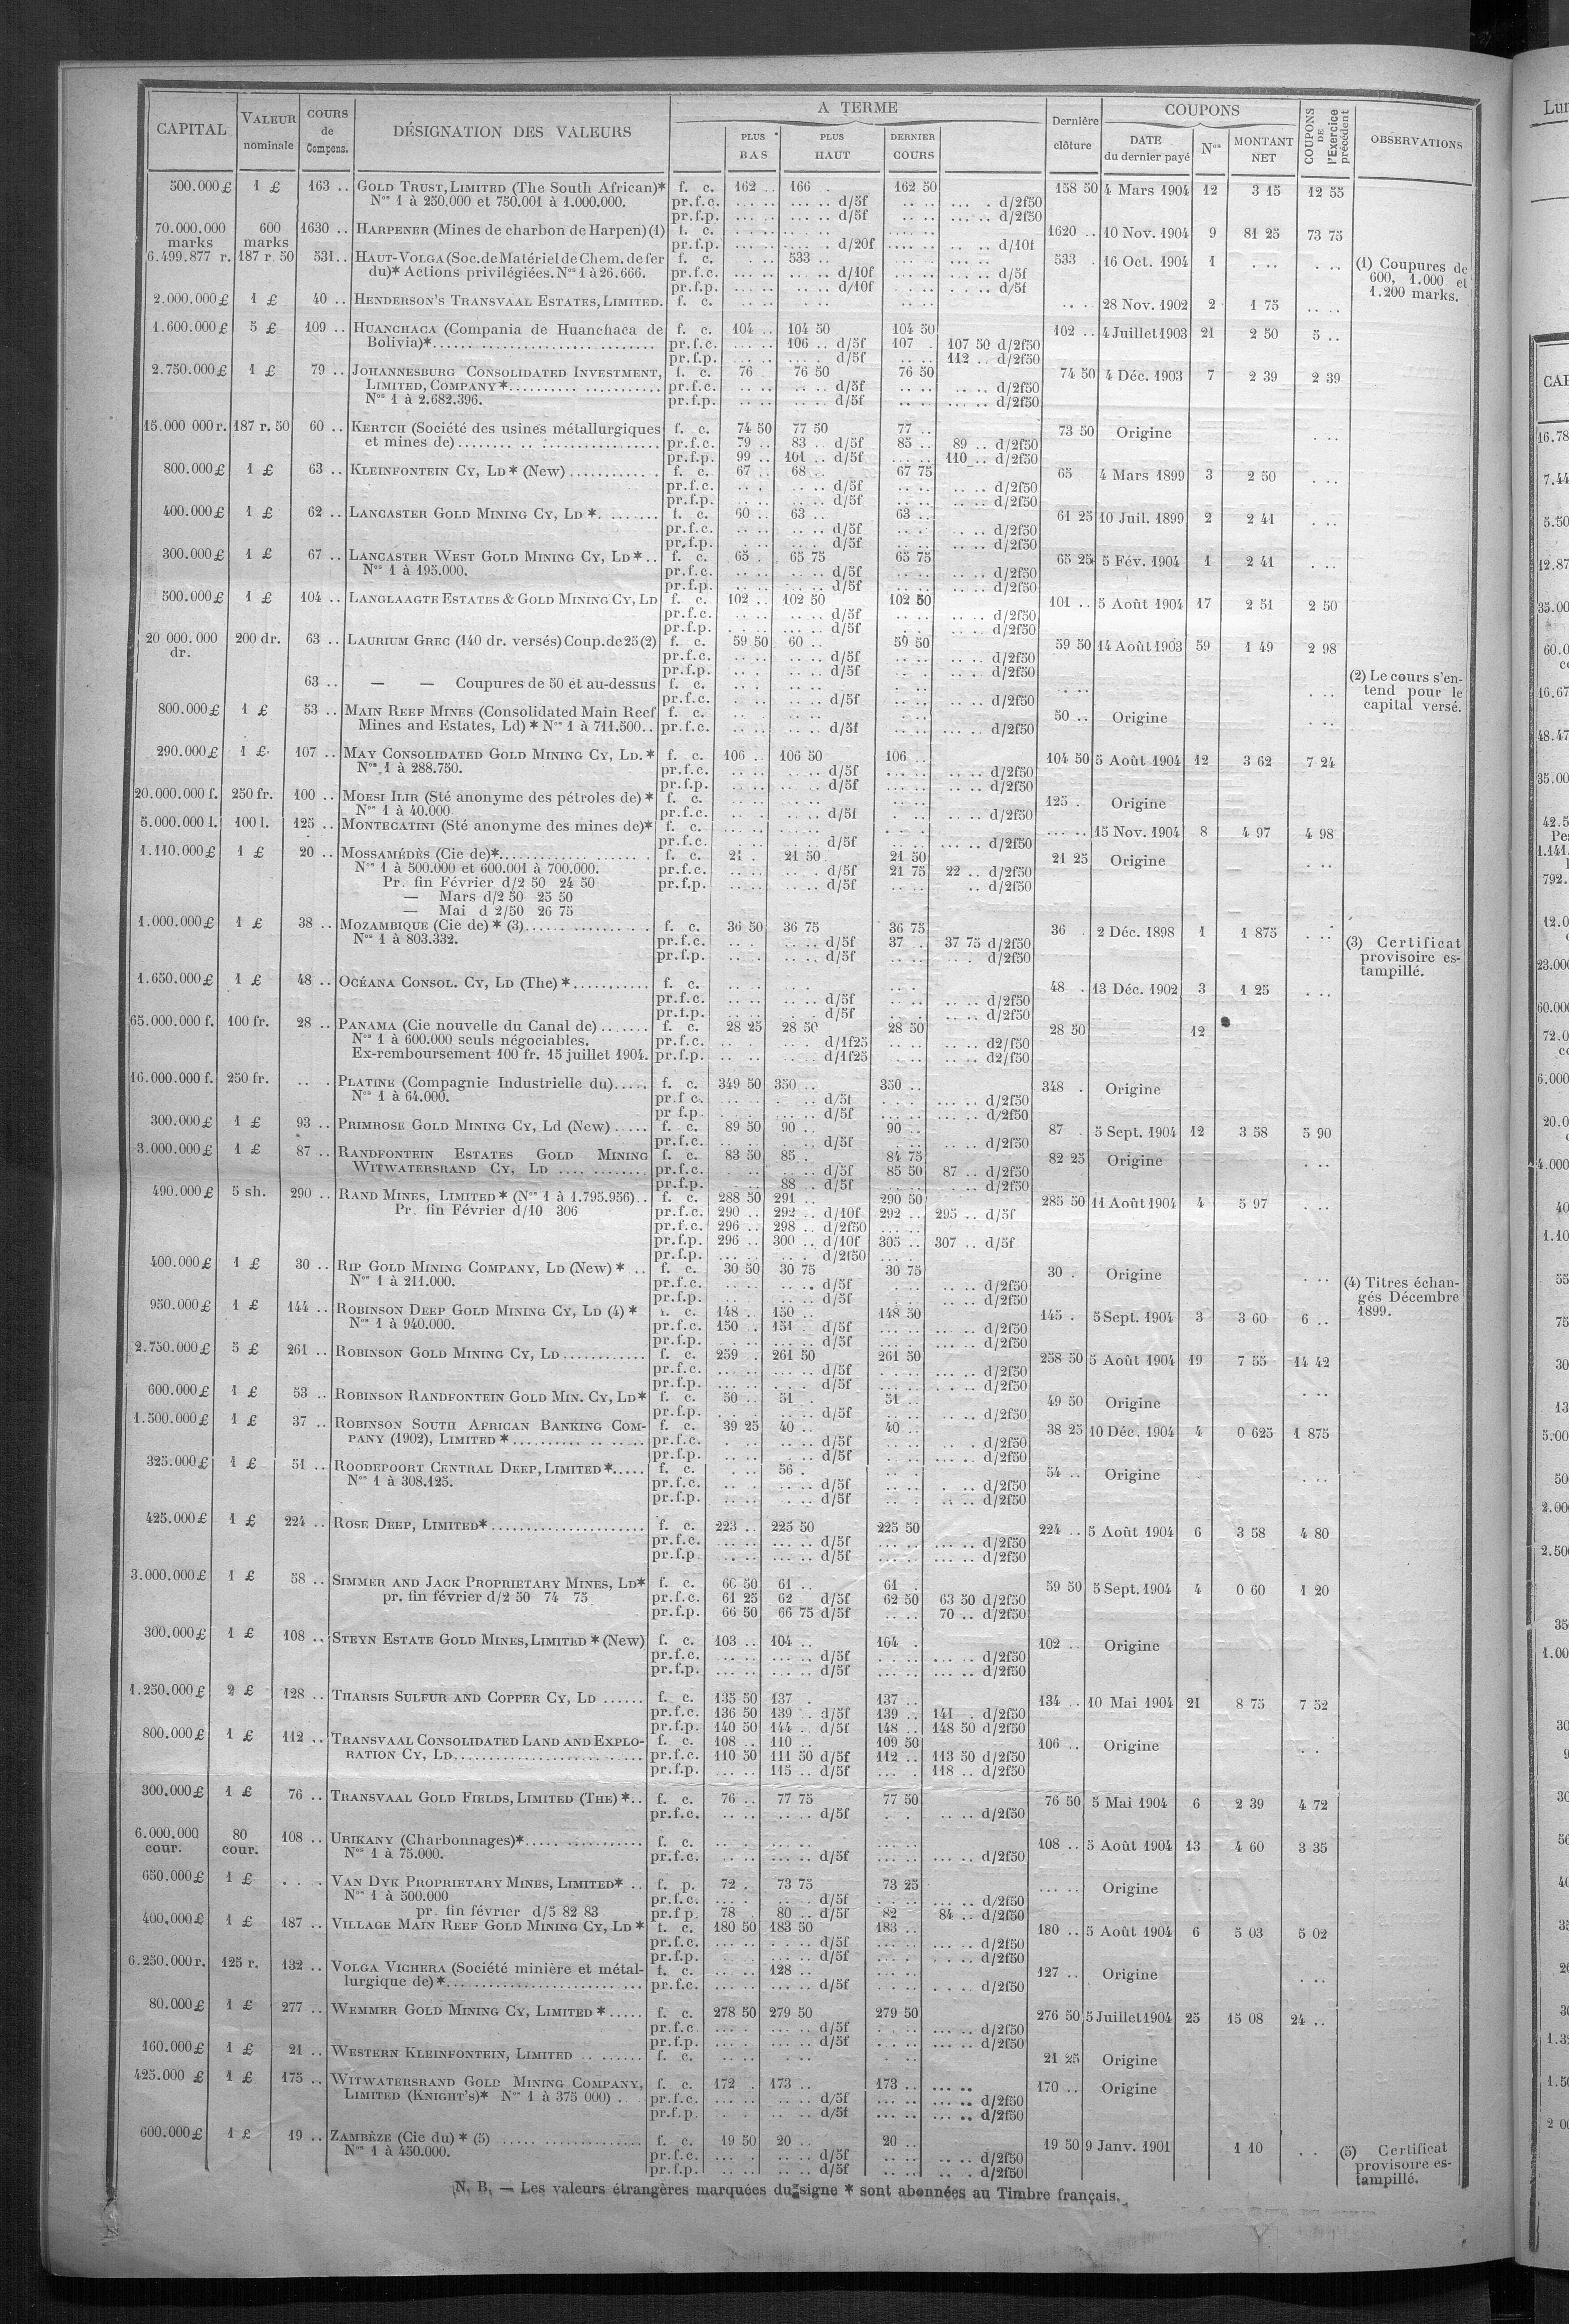 CAPITAL VALEUR nominale COURS de Compens. DÉSIGNATION DES VALEURS A TERME PLUS BAS PLUS HAUT DERNIER COURS Dernière clôture COUPONS DATE du dernier payé Nos MONTANT NET COUPONS DE l'Exercice précédent OBSERVATIONS
500.000 £ 1 £ 163 .. GOLD TRUST, LIMITED (The South African)* f. c. 162 .. 166 . 162 50 158 50 4 Mars 1904 12 3 15 12 55
Nos 1 à 250.000 et 750.001 à 1.000.000. pr.f.c. d/5f d/2f50
pr.f.p. d/5f d/2f50
70.000.000 marks 600 marks 1630 .. HARPENER (Mines de charbon de Harpen) (1) f. c. 1620 .. 10 Nov. 1904 9 81 25 73 75
pr.f.p. d/20f d/10f
6.499.877 r. 187 r. 50 531 .. HAUT-VOLGA (Soc. de Matériel de Chem. de fer f. c. 533 .. 533 . 16 Oct. 1904 1 (1) Coupures de
du)* Actions privilégiées. Nos 1 à 26.666. pr.f.c. d/10f d/5f 600, 1.000 et
pr.f.p. d/10f d/5f 1.200 marks.
2.000.000 £ 1 £ 40 .. HENDERSON'S TRANSVAAL ESTATES, LIMITED. f. c. 28 Nov. 1902 2 1 75
1.600.000 £ 5 £ 109 .. HUANCHACA (Compania de Huanchaca de f. c. 104 .. 104 50 104 50 102 .. 4 Juillet 1903 21 2 50 5 ..
Bolivia)* pr.f.c. 106 .. d/5f 107 . 107 50 d/2f50
pr.f.p. d/5f 112 .. d/2f50
2.750.000 £ 1 £ 79 .. JOHANNESBURG CONSOLIDATED INVESTMENT, f. c. 76 76 50 76 50 74 50 4 Déc. 1903 7 2 39 2 39
LIMITED, COMPANY* pr.f.c. d/5f d/2f50
Nos 1 à 2.682.396. pr.f.p. d/5f d/2f50
15.000 000 r. 187 r. 50 60 .. KERTCH (Société des usines métallurgiques f. c. 74 50 77 50 77 .. 73 50 Origine
et mines de) pr.f.c. 79 .. 83 . d/5f 85 .. 89 .. d/2f50
pr.f.p. 99 .. 101 .. d/5f 110 .. d/2f50
800.000 £ 1 £ 63 .. KLEINFONTEIN CY, LD* (New) f. c. 67 .. 68 .. 67 75 65 4 Mars 1899 3 2 50
pr.f.c. d/5f d/2f50
pr.f.p. d/5f d/2f50
400.000 £ 1 £ 62 .. LANCASTER GOLD MINING CY, LD* f. c. 60 .. 63 .. 63 .. 61 25 10 Juil. 1899 2 2 41
pr.f.c. d/5f d/2f50
pr.f.p. d/5f d/2f50
300.000 £ 1 £ 67 .. LANCASTER WEST GOLD MINING CY, LD* .. f. c. 65 . 65 75 65 75 65 25 5 Fév. 1904 1 2 41
Nos 1 à 195.000. pr.f.c. d/5f d/2f50
pr.f.p. d/5f d/2f50
500.000 £ 1 £ 104 .. LANGLAAGTE ESTATES & GOLD MINING CY, LD f. c. 102 .. 102 50 102 50 101 .. 5 Août 1904 17 2 51 2 50
pr.f.c. d/5f d/2f50
pr.f.p. d/5f d/2f50
20 000.000 dr. 200 dr. 63 .. LAURIUM GREC (140 dr. versés) Coup. de 25 (2) f. c. 59 50 60 .. 59 50 59 50 14 Août 1903 59 1 49 2 98
pr.f.c. d/5f d/2f50
pr.f.p. d/5f d/2f50
63 .. — — Coupures de 50 et au-dessus f. c. (2) Le cours s'en-
pr.f.c. d/5f d/2f50 tend pour le
800.000 £ 1 £ 53 .. MAIN REEF MINES (Consolidated Main Reef f. c. 50 .. Origine capital versé.
Mines and Estates, Ld) * Nos 1 à 711.500 .. pr.f.c. d/5f d/2f50
290.000 £ 1 £ 107 .. MAY CONSOLIDATED GOLD MINING CY, LD.* f. c. 106 .. 106 50 106 .. 104 50 5 Août 1904 12 3 62 7 24
Nos 1 à 288.750. pr.f.c. d/5f d/2f50
pr.f.p. d/5f d/2f50
20.000.000 f. 250 fr. 100 .. MOESI ILIR (Sté anonyme des pétroles de) * f. c. 125 . Origine
Nos 1 à 40.000 pr.f.c. d/5f d/2f50
5.000.000 l. 100 l. 125 .. MONTECATINI (Sté anonyme des mines de)* f. c. 15 Nov. 1904 8 4 97 4 98
pr.f.c. d/5f d/2f50
1.110.000 £ 1 £ 20 .. MOSSAMÉDÈS (Cie de)* f. c. 21 . 21 50 21 50 21 25 Origine
Nos 1 à 500.000 et 600.001 à 700.000. pr.f.c. d/5f 21 75 22 .. d/2f50
Pr. fin Février d/2 50 24 50 pr.f.p. d/5f d/2f50
— Mars d/2 50 25 50
— Mai d 2/50 26 75
1.000.000 £ 1 £ 38 .. MOZAMBIQUE (Cie de) * (3) f. c. 36 50 36 75 36 75 36 . 2 Déc. 1898 1 1 875
Nos 1 à 803.332. pr.f.c. d/5f 37 . 37 75 d/2f50 (3) Certificat
pr.f.p. d/5f d/2f50 provisoire es-
tampillé.
1.650.000 £ 1 £ 48 .. OCÉANA CONSOL. CY, LD (The) * f. c. 48 . 13 Déc. 1902 3 1 25
pr.f.c. d/5f d/2f50
pr.f.p. d/5f d/2f50
65.000.000 f. 100 fr. 28 .. PANAMA (Cie nouvelle du Canal de) f. c. 28 25 28 50 28 50 28 50 12
Nos 1 à 600.000 seuls négociables. pr.f.c. d/1f25 d2/f50
Ex-remboursement 100 fr. 15 juillet 1904. pr.f.p. d/1f25 d2/f50
16.000.000 f. 250 fr. PLATINE (Compagnie Industrielle du) f. c. 349 50 350 .. 350 .. 348 . Origine
Nos 1 à 64.000. pr.f c. d/5f d/2f50
pr f.p. d/5f d/2f50
300.000 £ 1 £ 93 .. PRIMROSE GOLD MINING CY, Ld (New) f. c. 89 50 90 .. 90 .. 87 . 5 Sept. 1904 12 3 58 5 90
pr.f.c. d/5f d/2f50
3.000.000 £ 1 £ 87 .. RANDFONTEIN ESTATES GOLD MINING f. c. 83 50 85 . 84 75 82 25 Origine
WITWATERSRAND CY, LD pr.f.c. d/5f 85 50 87 .. d/2f50
pr.f.p. 88 .. d/5f d/2f50
490.000 £ 5 sh. 290 .. RAND MINES, LIMITED* (Nos 1 à 1.795.956) .. f. c. 288 50 291 .. 290 50 285 50 11 Août 1904 4 5 97
Pr. fin Février d/10 306 pr.f.c. 290 .. 292 .. d/10f 292 .. 295 .. d/5f
pr.f.c. 296 .. 298 .. d/2f50
pr.f.p. 296 .. 300 .. d/10f 305 .. 307 .. d/5f
pr.f.p. d/2f50
400.000 £ 1 £ 30 .. RIP GOLD MINING COMPANY, LD (New) * .. f. c. 30 50 30 75 30 75 30 . Origine
Nos 1 à 211.000. pr.f.c. d/5f d/2f50 (4) Titres échan-
pr.f.p. d/5f d/2f50 gés Décembre
950.000 £ 1 £ 144 .. ROBINSON DEEP GOLD MINING CY, LD (4) * f. c. 148 . 150 .. 148 50 145 . 5 Sept. 1904 3 3 60 6 .. 1899.
Nos 1 à 940.000. pr.f.c. 150 . 151 . d/5f d/2f50
pr.f.p. d/5f d/2f50
2.750.000 £ 5 £ 261 .. ROBINSON GOLD MINING CY, LD f. c. 259 . 261 50 261 50 258 50 5 Août 1904 19 7 55 14 42
pr.f.c. d/5f d/2f50
pr.f.p. d/5f d/2f50
600.000 £ 1 £ 53 .. ROBINSON RANDFONTEIN GOLD MIN. CY, LD* f. c. 50 .. 51 . 51 .. 49 50 Origine
pr.f.p. d/5f d/2f50
1.500.000 £ 1 £ 37 .. ROBINSON SOUTH AFRICAN BANKING COM- f. c. 39 25 40 .. 40 .. 38 25 10 Déc. 1904 4 0 625 1 875
PANY (1902), LIMITED * pr.f.c. d/5f d/2f50
pr.f.p. d/5f d/2f50
325.000 £ 1 £ 51 .. ROODEPOORT CENTRAL DEEP, LIMITED* f. c. 56 . 54 .. Origine
Nos 1 à 308.125. pr.f.c. d/5f d/2f50
pr.f.p. d/5f d/2f50
425.000 £ 1 £ 224 .. ROSE DEEP, LIMITED* f. c. 223 .. 225 50 225 50 224 .. 5 Août 1904 6 3 58 4 80
pr.f.c. d/5f d/2f50
pr.f.p. d/5f d/2f50
3.000.000 £ 1 £ 58 .. SIMMER AND JACK PROPRIETARY MINES, LD* f. c. 60 50 61 .. 61 . 59 50 5 Sept. 1904 4 0 60 1 20
pr. fin février d/2 50 74 75 pr.f.c. 61 25 62 d/5f 62 50 63 50 d/2f50
pr.f.p. 66 50 66 75 d/5f 70 .. d/2f50
300.000 £ 1 £ 108 .. STEYN ESTATE GOLD MINES, LIMITED * (New) f. c. 103 .. 104 .. 104 . 102 .. Origine
pr.f.c. d/5f d/2f50
pr.f.p. d/5f d/2f50
1.250.000 £ 2 £ 128 .. THARSIS SULFUR AND COPPER CY, LD f. c. 135 50 137 . 137 .. 134 .. 10 Mai 1904 21 8 75 7 52
pr.f.c. 136 50 139 .. d/5f 139 .. 141 . d/2f50
pr.f.p. 140 50 144 .. d/5f 148 .. 148 50 d/2f50
800.000 £ 1 £ 112 .. TRANSVAAL CONSOLIDATED LAND AND EXPLO- f. c. 108 .. 110 .. 109 50 106 .. Origine
RATION CY, LD pr.f.c. 110 50 111 50 d/5f 112 .. 113 50 d/2f50
pr.f.p. 115 .. d/5f 118 .. d/2f50
300.000 £ 1 £ 76 .. TRANSVAAL GOLD FIELDS, LIMITED (THE) * .. f. c. 76 .. 77 75 77 50 76 50 5 Mai 1904 6 2 39 4 72
pr.f.c. d/5f d/2f50
6.000.000 cour. 80 cour. 108 .. URIKANY (Charbonnages)* f. c. 108 .. 5 Août 1904 13 4 60 3 35
Nos 1 à 75.000. pr.f.c. d/5f d/2f50
650.000 £ 1 £ VAN DYK PROPRIETARY MINES, LIMITED* .. f. p. 72 . 73 75 73 25 Origine
Nos 1 à 500.000 pr.f.c. d/5f d/2f50
pr. fin février d/5 82 83 pr.f p. 78 80 .. d/5f 82 84 .. d/2f50
400.000 £ 1 £ 187 .. VILLAGE MAIN REEF GOLD MINING CY, LD * f. c. 180 50 183 50 183 .. 180 .. 5 Août 1904 6 5 03 5 02
pr.f.c. d/5f d/2f50
pr.f.p. d/5f d/2f50
6.250.000 r. 125 r. 132 .. VOLGA VICHERA (Société minière et métal- f. c. 128 .. 127 .. Origine
lurgique de) * pr.f.c. d/5f d/2f50
80.000 £ 1 £ 277 .. WEMMER GOLD MINING CY, LIMITED * f. c. 278 50 279 50 279 50 276 50 5 Juillet 1904 25 15 08 24 ..
pr.f.c d/5f d/2f50
pr.f.p. d/5f d/2f50
160.000 £ 1 £ 21 .. WESTERN KLEINFONTEIN, LIMITED f. c. 21 25 Origine
425.000 £ 1 £ 175 .. WITWATERSRAND GOLD MINING COMPANY, f. c. 172 . 173 .. 173 .. 170 .. Origine
LIMITED (KNIGHT'S)* Nos 1 à 375 000) . pr.f.c. d/5f d/2f50
pr.f.p. d/5f d/2f50
600.000 £ 1 £ 19 .. ZAMBÈZE (Cie du) * (5) f. c. 19 50 20 .. 20 .. 19 50 9 Janv. 1901 1 10 (5) Certificat
Nos 1 à 450.000. pr.f.c. d/5f d/2f50 provisoire es-
pr.f.p. d/5f d/2f50 tampillé.
N. B. — Les valeurs étrangères marquées du signe * sont abonnées au Timbre français.